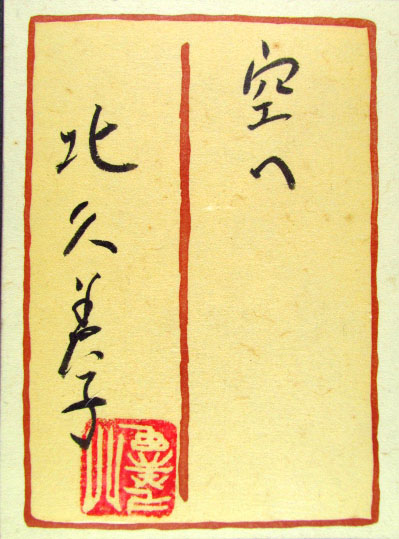 空へ
北久美子